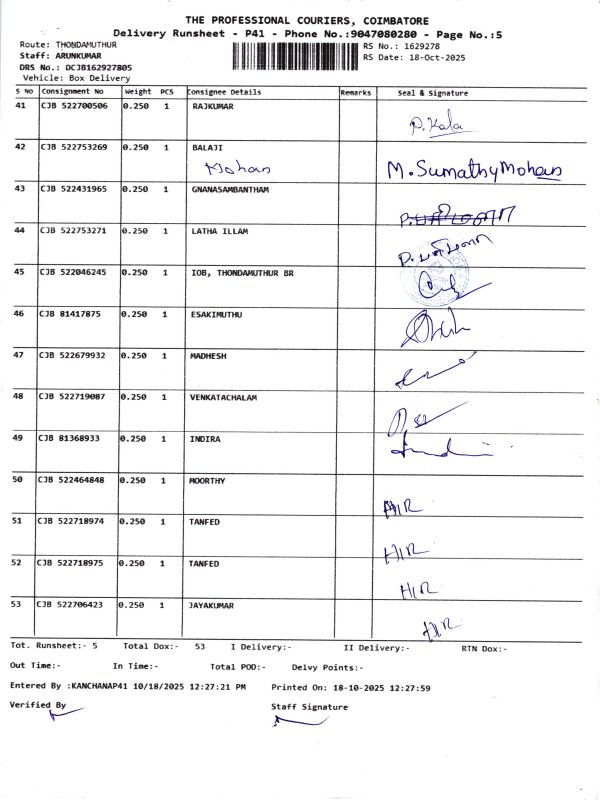 THE PROFESSIONAL COURIERS, COIMBATORE
Delivery Runsheet - P41 - Phone No.:9047080280 - Page No.:5
Route: THONDAMUTHUR
Staff: ARUNKUMAR
DRS No.: DCJB162927805
Vehicle: Box Delivery
RS No.: 1629278
RS Date: 18-Oct-2025
S NO Consignment No Weight PCS Consignee Details Remarks Seal & Signature
41 CJB 522700506 0.250 1 RAJKUMAR
P.Kala
42 CJB 522753269 0.250 1 BALAJI
Mohan M.SumathyMohan
43 CJB 522431965 0.250 1 GNANASAMBANTHAM
44 CJB 522753271 0.250 1 LATHA ILLAM
45 CJB 522046245 0.250 1 IOB, THONDAMUTHUR BR
46 CJB 81417875 0.250 1 ESAKIMUTHU
47 CJB 522679932 0.250 1 MADHESH
48 CJB 522719087 0.250 1 VENKATACHALAM
49 CJB 81368933 0.250 1 INDIRA
50 CJB 522464848 0.250 1 MOORTHY
H1R
51 CJB 522718974 0.250 1 TANFED
H1R
52 CJB 522718975 0.250 1 TANFED
H1R
53 CJB 522706423 0.250 1 JAYAKUMAR
H1R
Tot. Runsheet:- 5 Total Dox:- 53 I Delivery:- II Delivery:- RTN Dox:-
Out Time:- In Time:- Total POD:- Delvy Points:-
Entered By :KANCHANAP41 10/18/2025 12:27:21 PM Printed On: 18-10-2025 12:27:59
Verified By Staff Signature